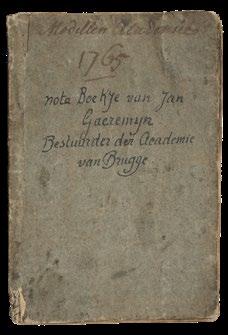 Modellen Academie
1765
nota Boekje van Jan
Gaeremijn
Bestuurder der Academie
van Brugge